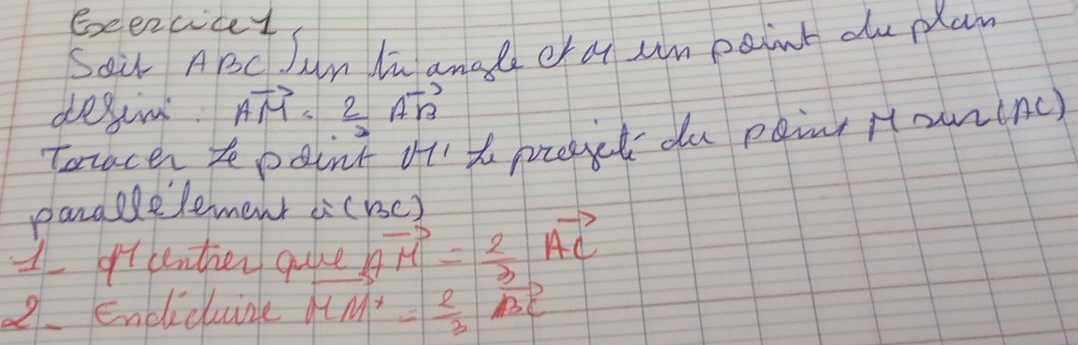 Exercice 1
Soit ABC un triangle et M un point du plan
défini : AM = 2/3 AB
Tracer le point M' le projeté du point M sur (AC)
parallèlement à (BC)
1- Montrer que AM' = 2/3 AC
2- En déduire MM' = 2/3 BC